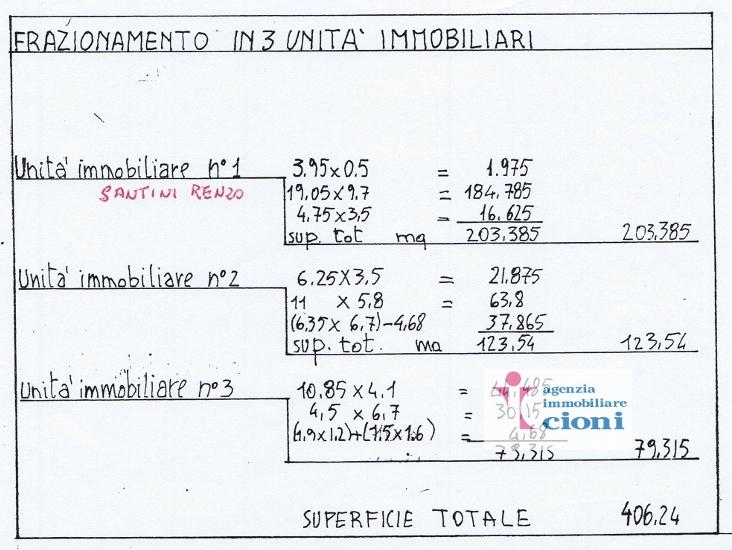 FRAZIONAMENTO IN 3 UNITA' IMMOBILIARI
Unita' immobiliare n° 1 3.95 x 0.5 = 1.975
SANTINI RENZO 19,05 x 9.7 = 184,785
4,75 x 3,5 = 16.625
sup. tot mq 203.385 203.385
Unita' immobiliare n° 2 6.25 x 3.5 = 21.875
11 x 5.8 = 63.8
(6,35 x 6,7) - 4,68 37.865
sup. tot. mq 123.54 123,54
Unita' immobiliare n° 3 10.85 x 4.1 = 44.485
4,5 x 6,7 = 30,15
(4.9 x 1.2) + (1,5 x 1.6) = 4,68
79,315 79,315
agenzia
immobiliare
cioni
SUPERFICIE TOTALE 406.24